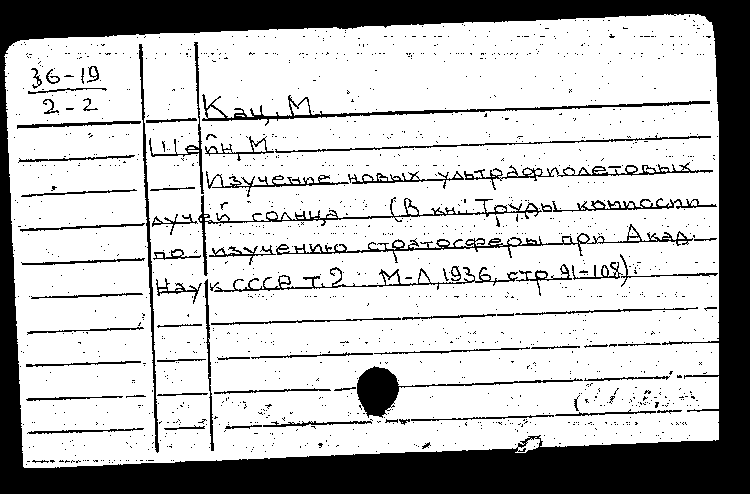 36-19
2-2
Кац, М.
Шейн, М.
Изучение новых ультрафиолетовых
лучей солнца. (В кн.: Труды комиссии
по изучению стратосферы при Акад.
Наук СССР т. 2. М-Л, 1936, стр. 91-108).